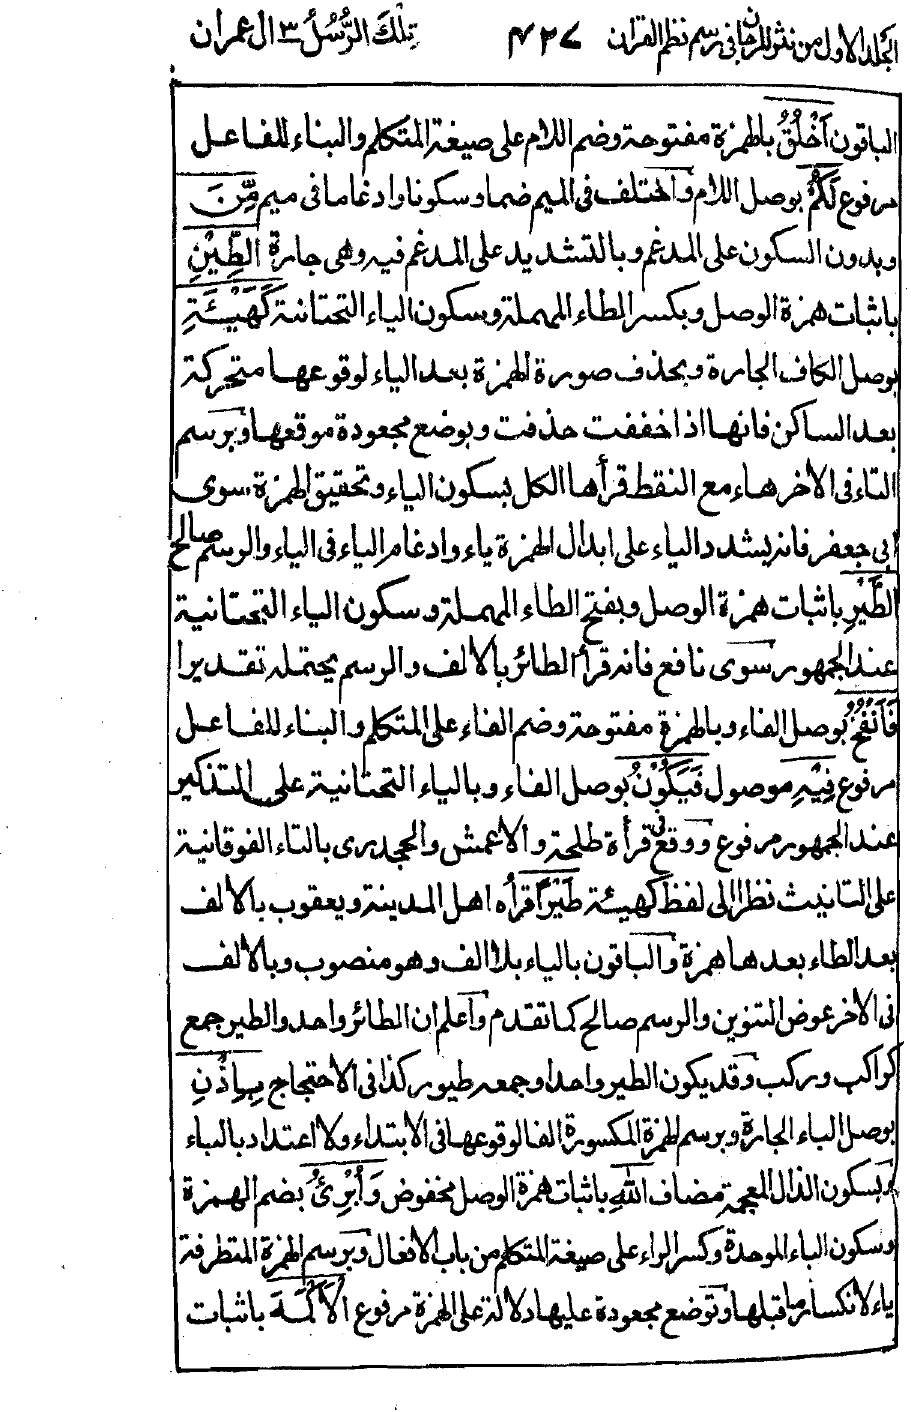 الجلد الاول من نثر المرجان فى رسم نظم القران ٤٢٧ تِلْكَ الرُّسُلُ ٣ ال عمران
الباقون اَخْلُقُ بالهمزة مفتوحة وضم اللام على صيغة المتكلم والبناء للفاعل
مرفوع لَكُمْ بوصل اللام واختلف فى الميم ضما وسكونا وادغاما فى ميم مِّنَ
وبدون السكون على المدغم وبالتشديد على المدغم فيه وهى جارة الطِّيْنِ
باثبات همزة الوصل وبكسر الطاء المهملة وسكون الياء التحتانية كَهَيْئَةِ
بوصل الكاف الجارة وبحذف صورة الهمزة بعد الياء لوقوعها متحركة
بعد الساكن فانها اذا خففت حذفت وبوضع مجعودة موقعها وبرسم
التاء فى الاخر هاء مع النقط قرأها الكل بسكون الياء وتحقيق الهمزة سوى
ابى جعفر فانه يشدد الياء على ابدال الهمزة ياء وادغام الياء فى الياء والرسم صالح
الطَّيْرِ باثبات همزة الوصل وبفتح الطاء المهملة وسكون الياء التحتانية
عند الجمهور سوى نافع فانه قرأ الطائر بالالف والرسم يحتمله تقديرا
فَاَنْفُخُ بوصل الفاء وبالهمزة مفتوحة وضم الفاء على المتكلم والبناء للفاعل
مرفوع فِيْهِ موصول فَيَكُوْنُ بوصل الفاء وبالياء التحتانية على التذكير
عند الجمهور مرفوع ووقع فى قرأة طلحة والاعمش والجحدرى بالتاء الفوقانية
على التانيث نظرا الى لفظ كهيئة طَيْرًا قرأه اهل المدينة ويعقوب بالالف
بعد الطاء بعدها همزة والباقون بالياء بلا الف وهو منصوب وبالالف
فى الاخر عوض التنوين والرسم صالح كما تقدم واعلم ان الطائر واحد والطير جمع
كراكب وركب وقد يكون الطير واحدا وجمعه طيور كذا فى الاحتجاج بِاِذْنِ
بوصل الباء الجارة وبرسم الهمزة المكسورة الفا لوقوعها فى الابتداء ولا اعتداد بالباء
وبسكون الذال المعجمة مضاف اللّٰهِ باثبات همزة الوصل مخفوض وَاُبْرِئُ بضم الهمزة
وسكون الباء الموحدة وكسر الراء على صيغة المتكلم من باب الافعال وبرسم الهمزة المتطرفة
ياء لانكسار ما قبلها وتوضع مجعودة عليها دلالة على الهمزة مرفوع الْاَكْمَهَ باثبات